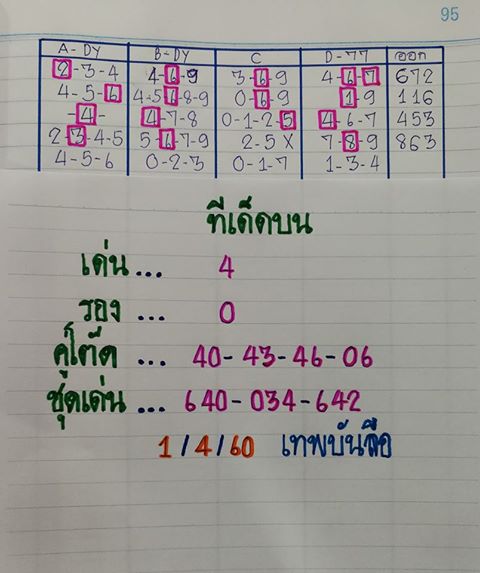 95
A - DY B - DY C D - 77 ออก
2-3-4 4-6-9 3-6-9 4-6-7 672
4-5-6 4-5-6-8-9 0-6-9 1-9 116
-4- 4-7-8 0-1-2-5 4-6-7 453
2-3-4-5 5-6-7-9 2-5 X 7-8-9 863
4-5-6 0-2-3 0-1-7 1-3-4
ทีเด็ดบน
เด่น ... 4
รอง ... 0
คู่โต๊ด ... 40-43-46-06
ชุดเด่น ... 640-034-642
1/4/60 เทพบันลือ